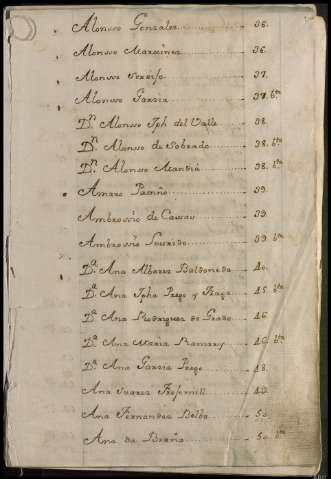 Alonsso Gonzalez 36.
Alonsso 36.
Alonsso 37.
Alonsso Garzia 37. bta
Dn. Alonsso Jph del Valle 38.
Dn. Alonsso de Sobrado 38. bta
Dn. Alonsso 38. bta
Amaro Patiño 39.
Ambrossio de 39.
Ambrossio Louzido 39 bta
Da. Ana Albarez Baldoneda 40.
Da. Ana Jpha Prego y 45. bta
Da. Ana Rodriguez de Prado 46.
Da. Ana Maria Ramirez 46. bta
Da. Ana Garzia Prego 48.
Ana Suarez 49.
Ana Fernandez Belda 50.
Ana da Braña 50. bta